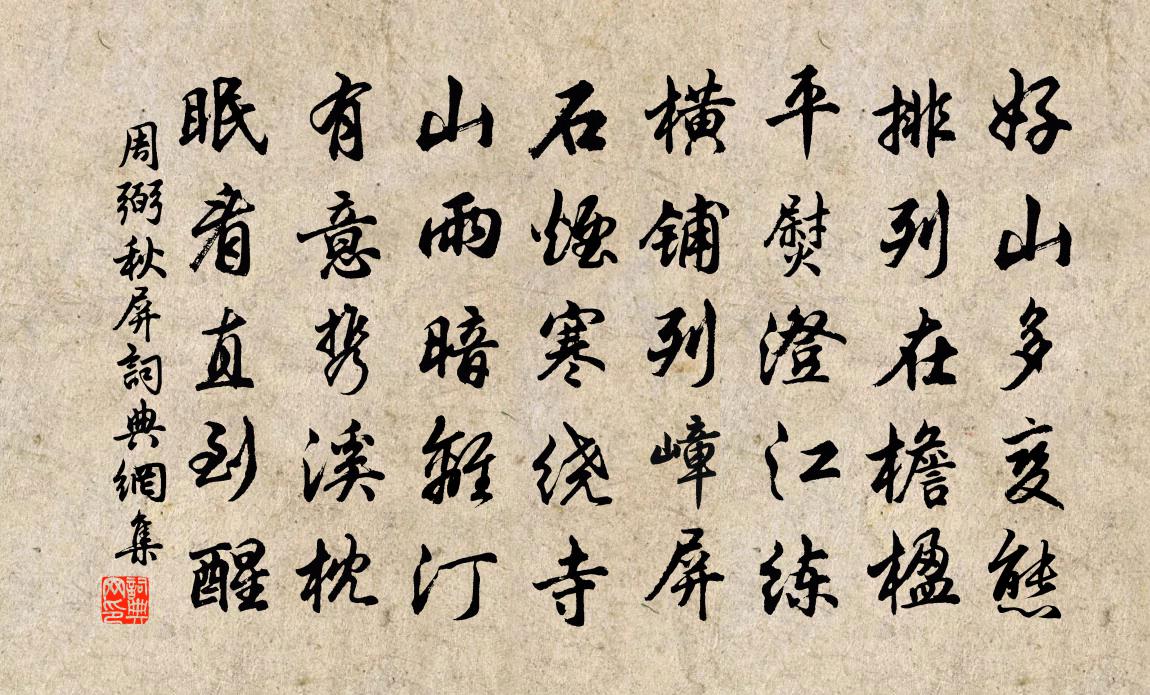 好山多变態
排列在檐楹
平熨澄江练
横铺列嶂屏
石煙寒绕寺
山雨暗離汀
有意携溪枕
眠看直到醒
周弼秋屏詞典網集
詞典
网印